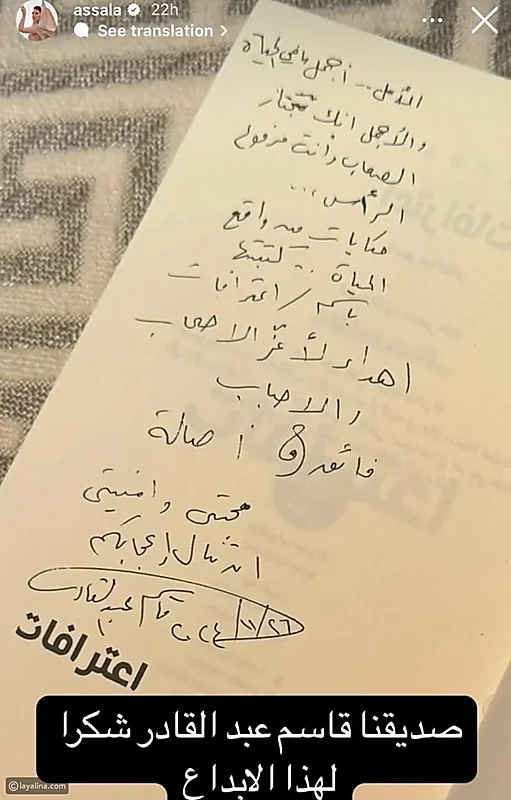 assala 22h
See translation
الأمل .. أجمل ما في الحياة
والأجمل انك تجتاز
الصعاب وأنت مرفوع
الرأس ...
حكايات من واقع
الحياة .. كتبتها
باسم / اعترافات
اهداء لأعز الاصحاب
والاحباب
فائق و أصالة
محبتي وامنيتي
ان تنال إعجابكم
قاسم عبدالقادر
٢٠٢٤/١١/٢٦
اعترافات
صديقنا قاسم عبد القادر شكرا
لهذا الابداع
layalina.com